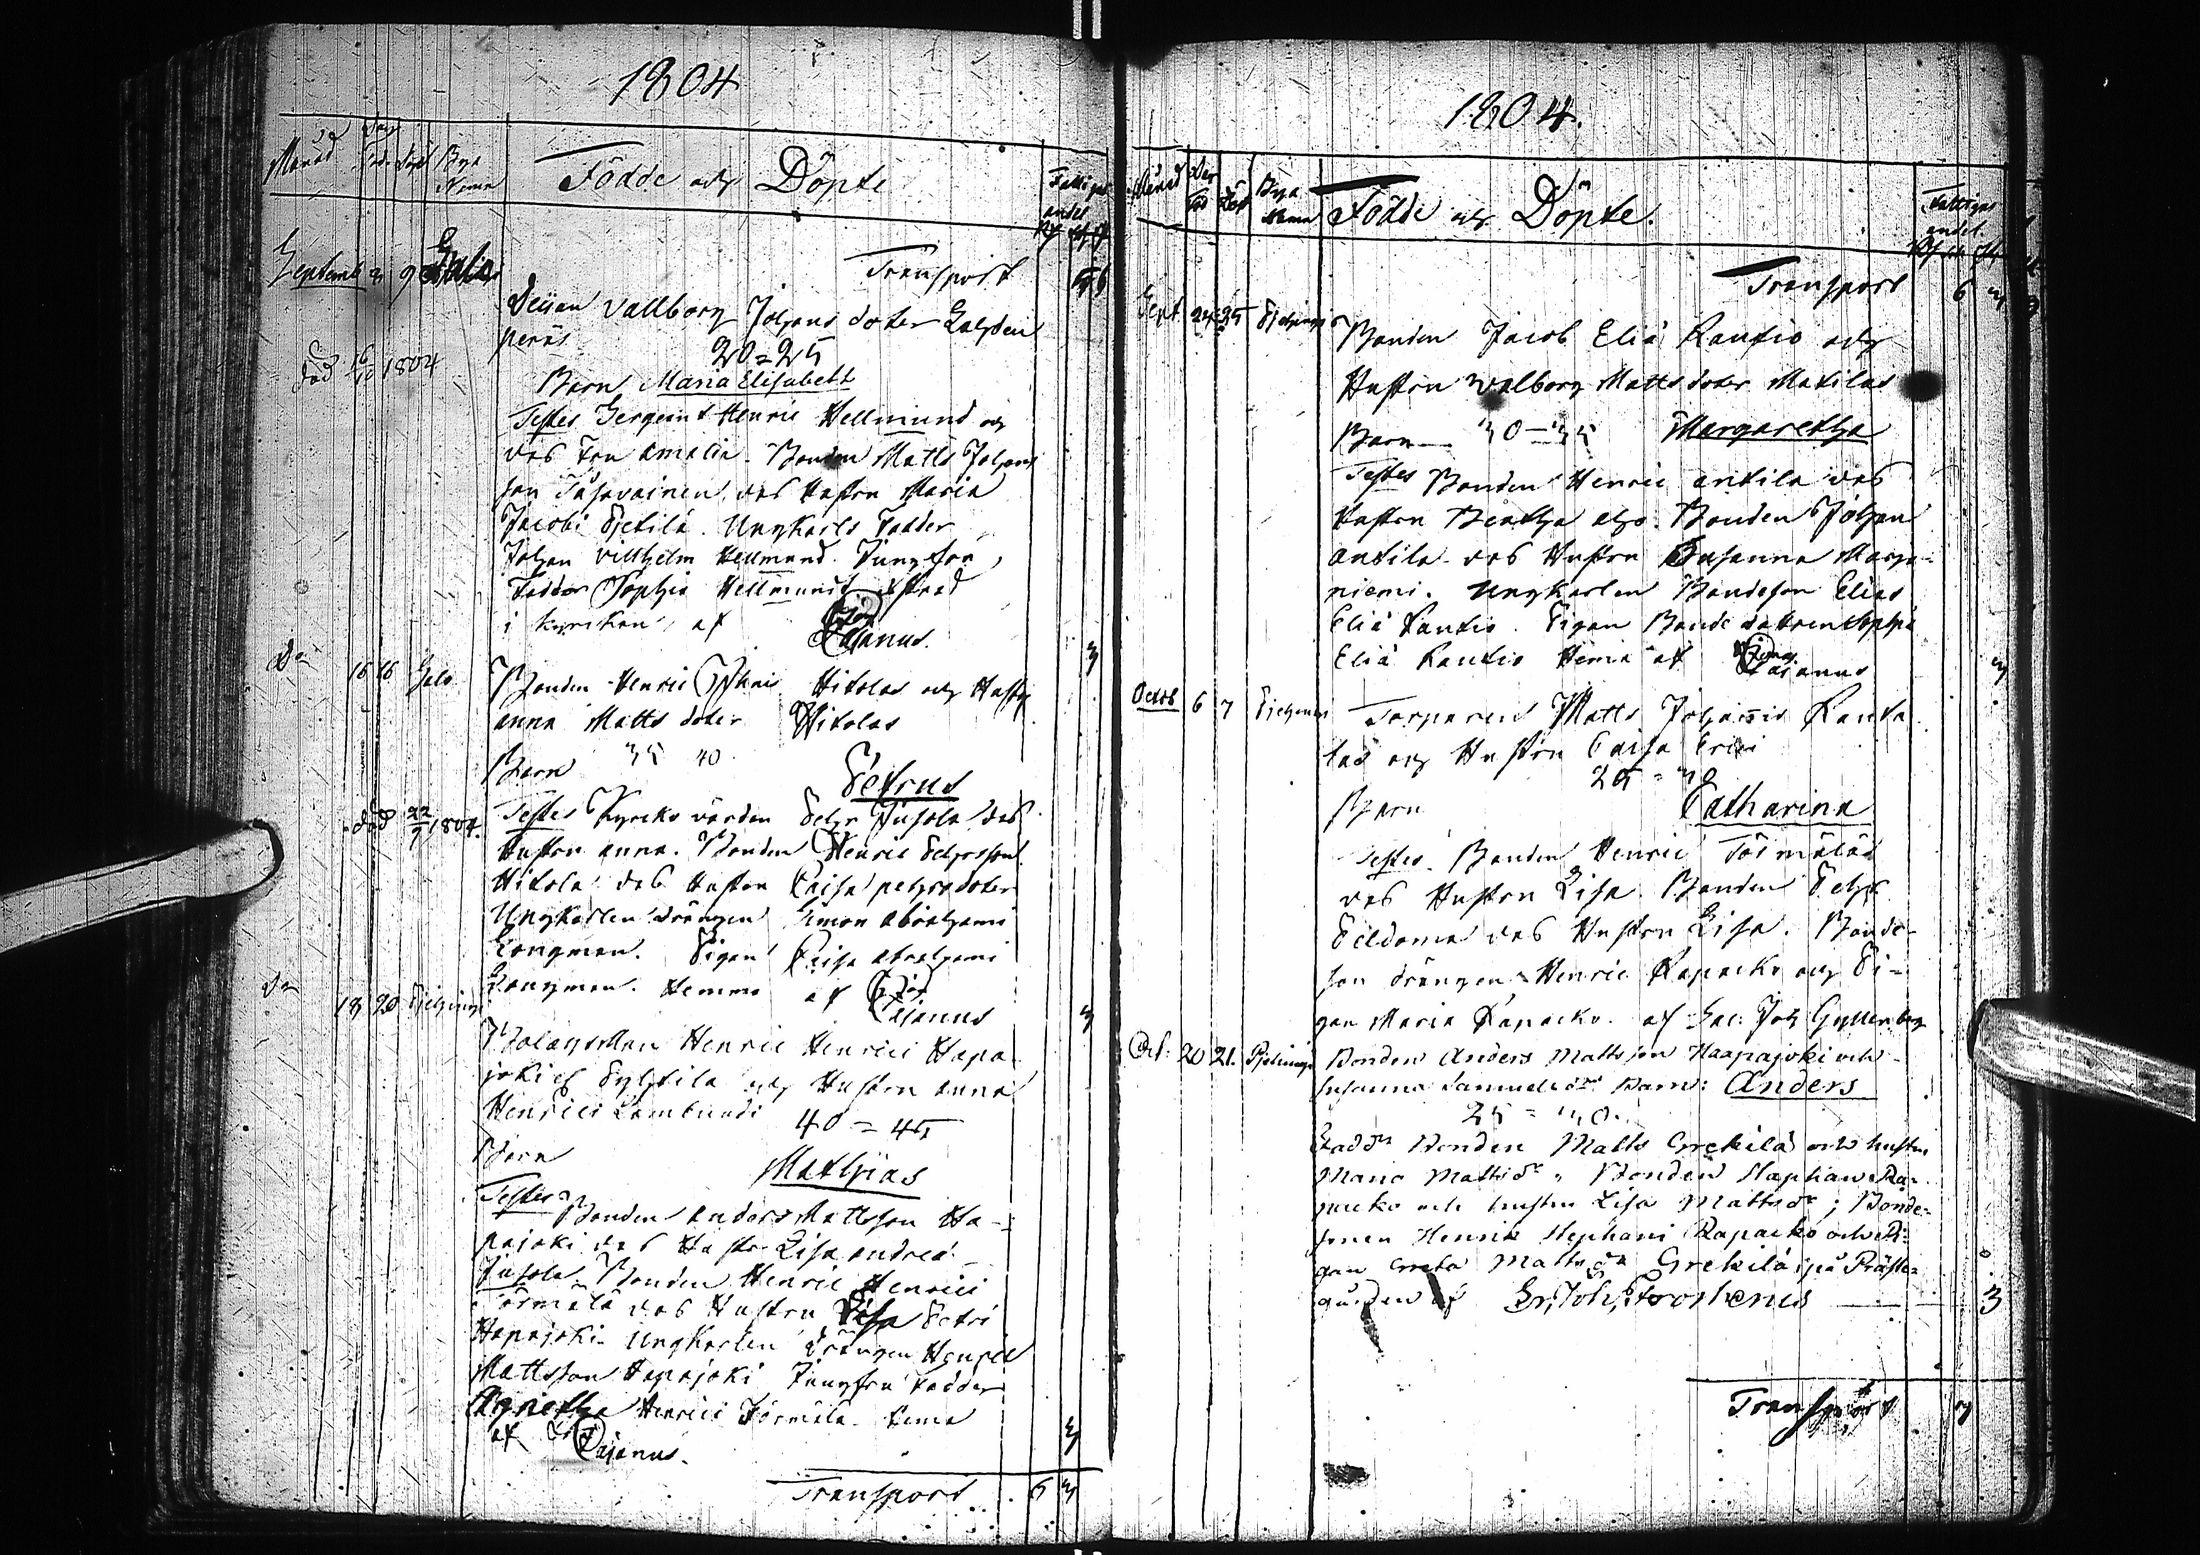 1804
Månad Dag Född Döpt Bya Namn Födde och Döpte Fattigas andel
Septemb 8 9 Transport
Deijan Vallborg Johans doter
peräs 20=25
död 16/10 1804
Barn Maria Elisabeth
Testes Sergeant Henric Hellmund och
des Fru Amalia. Bonden Matts Johans
son des Hustru Maria
Jacobi Ungkarls Fadder
Johan Villhelm Hellmund. Jungfru
Fadder Sophia Hellmund
i kyrckan, af Cajanus.
Do 16 16 Salo Bonden Henric Hikolas och Hustru
Anna Matts doter Hikolas
Barn 35 40 Petrus
död 22/9 1804. Testes Kyrko värden Pehr Jusola des
Hustru Anna. Bonden Henric Pehrsson
Hikola des Hustru Caisa pehrsdoter
Ungkarlen Drängen Simon Abrahami
Longman. Pigan Caisa Abrahami
Longman. Hemma af Cajanus 3
Do 18 20 Bolagsman Henric Henrici Hapa
joki och Hustru Anna
Henrici 40=45
Barn Mathias
Testes Bonden Anders Mattsson Ha-
pajoki des Hustru Lisa Andreæ
Jusola. Bonden Henric Henrici
Törmälä des Hustru Lisa Petri
Hapajoki. Ungkarlen Drängen Henric
Mattsson Hapajoki Jungfru Fadder
Agnetha Henrici Törmälä. hema
af Cajanus. 3
Transport 6 3
1804.
Månad Dag Föd Döpt Bya Namn Födde och Döpte. Fattigas andel
Transport 6 3
Sept 24 25 Bonden Jacob Eliæ Rautio och
Hustru Walborg Matts doter Matilas
Barn 30=35 Margaretha
Testes Bonden Henric Antila des
Hustru Beatha Bonden Johan
Antila des Hustru Susanna Marja-
niemi. Ungkarlen Bondeson Elias
Eliæ Rautio. Pigan Bonde dottren Sophia
Eliæ Rautio Hema af Cajanus 3
Octob 6 7 Torparen Matts Johannis Ranta
las och Hustru Caisa Erici
25=30
Barn Catharina
Testes. Bonden Henric Törmäläs
des Hustru Lisa. Bonden Pehr
Peldoma des Hustru Lisa. Bonde-
son drängen Henric Rapacko och Pi-
gan Maria Rapacko. af Sac: Joh Gyllenberg
Oct: 20 21. Bonden Anders Mattsson Haapajoki och
Susanna Samuelsdr Barn: Anders
25=30.
Faddr Bonden Matts Grekilä och hustru
Maria Mattsdr, Bonden Staphan Ra-
packo och hustru Lisa Mattsdr; Bonde-
sonen Henric Stephani Rapacko och Pi-
gan Greta Mattsdr Grekilä; på Präste-
gården af Er: Joh: Frosterus 3
Transport 7